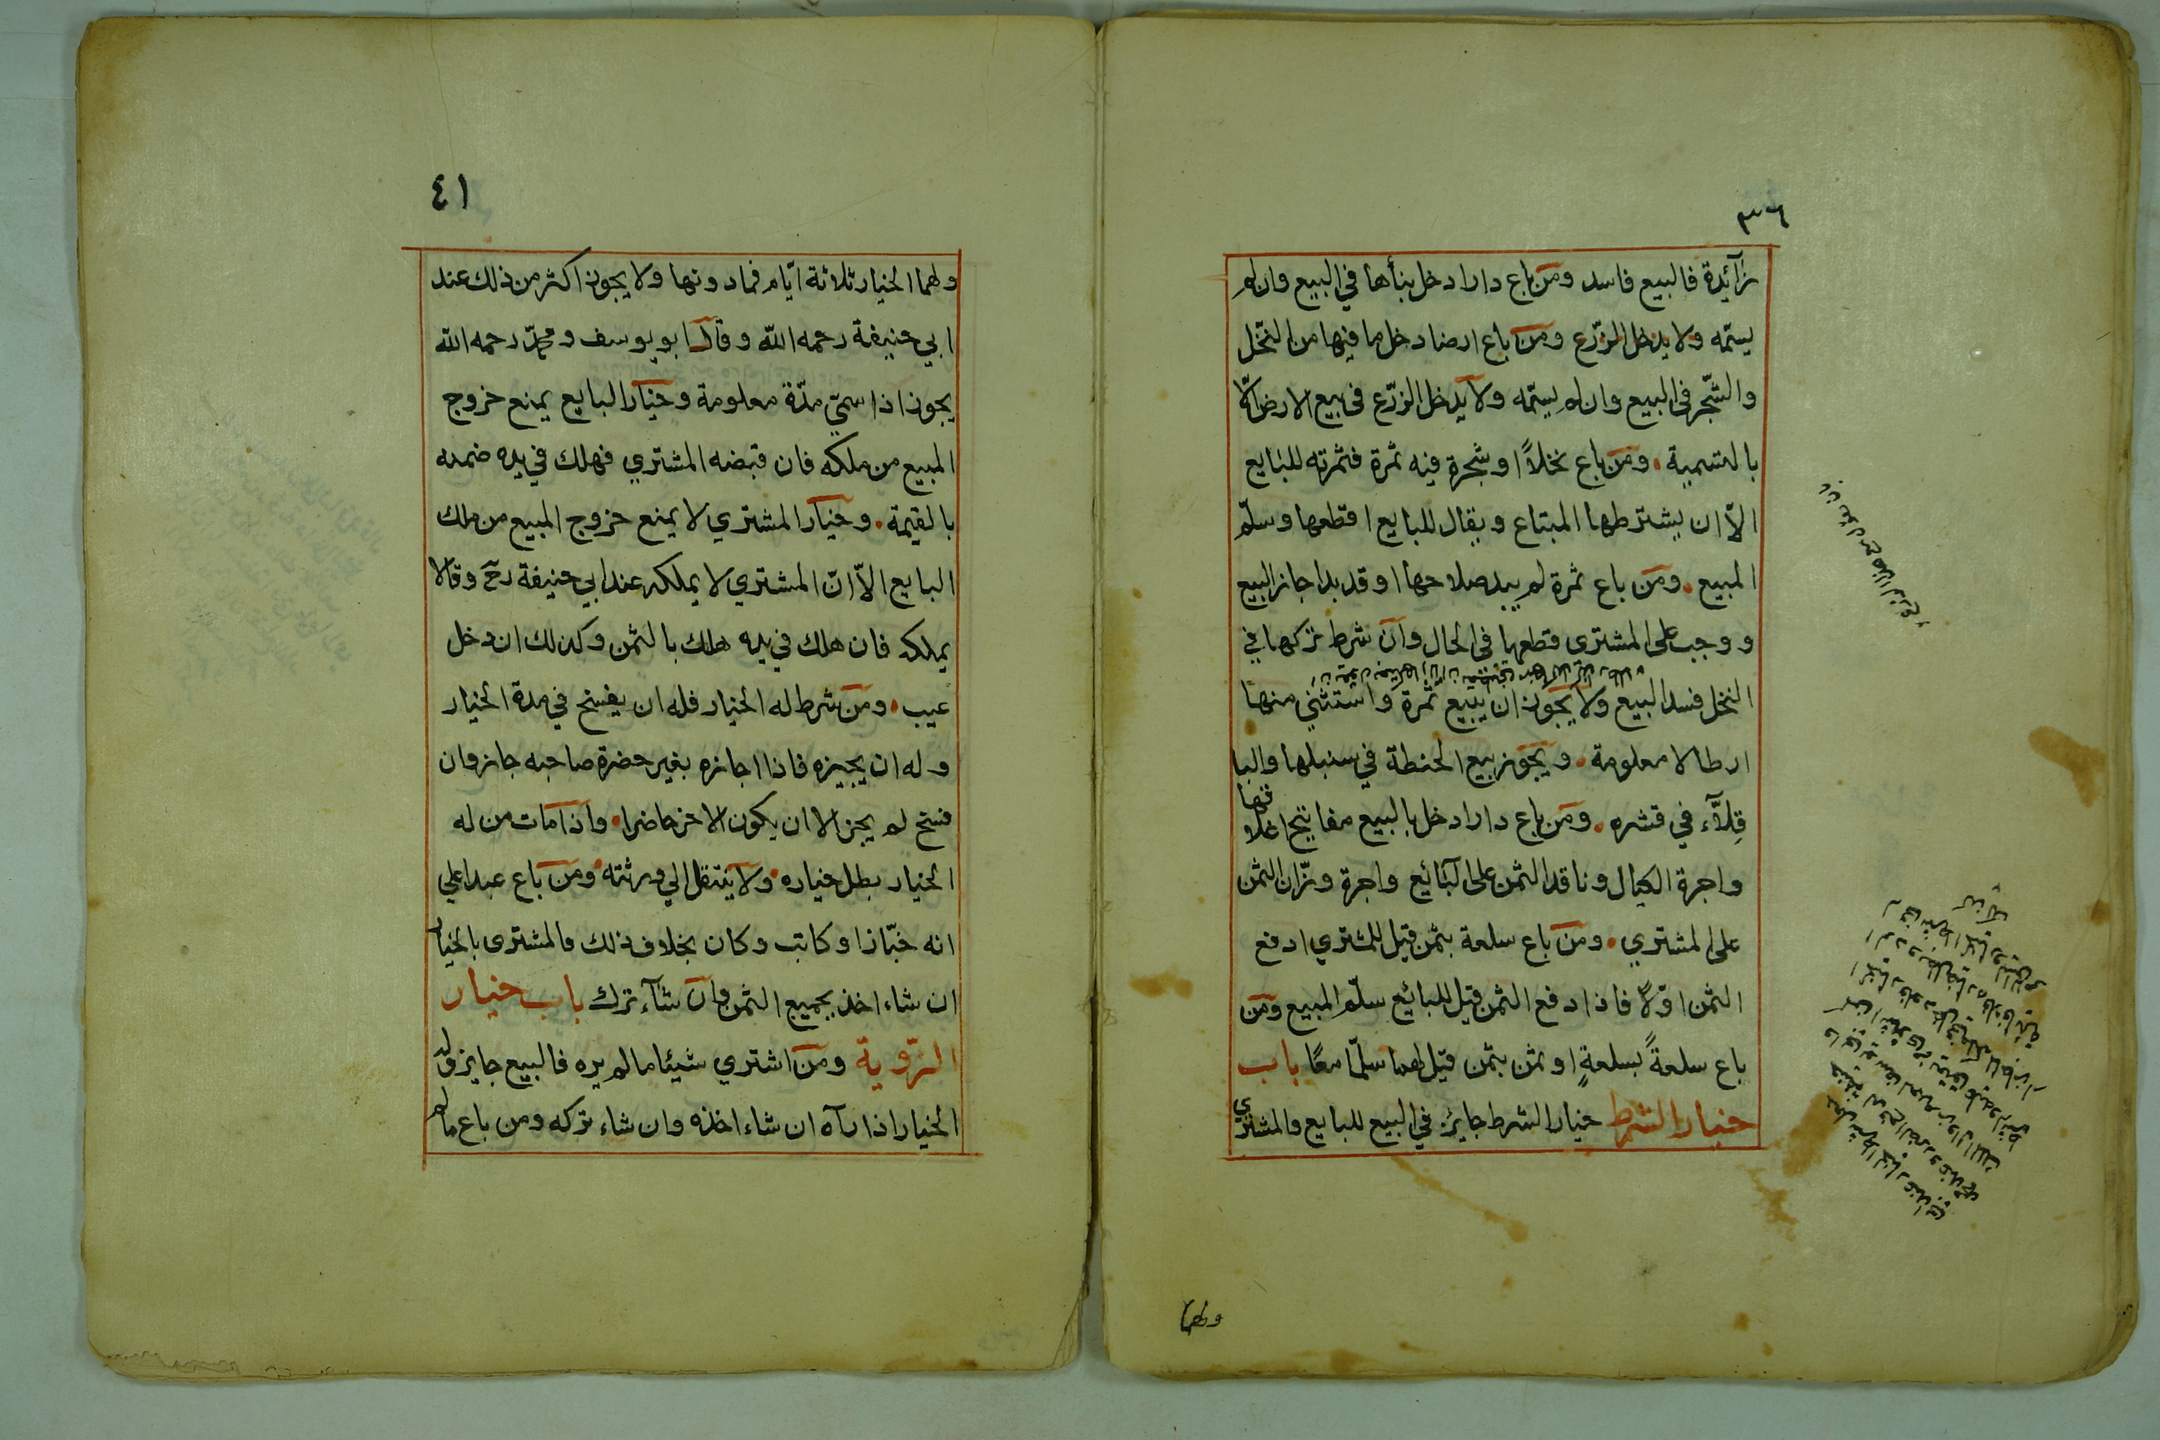 ٣٦
زآئدة فالبيع فاسد ومن باع دارا دخل بنأها في البيع وان لم
يسمّه ولا يدخل الزّرع ومن باع ارضا دخل ما فيها من النّخل
والشّجر في البيع وان لم يسمّه ولا يدخل الزّرع في بيع الارض الّا
بالتسمية ومن باع نخلاً او شجرة فيه ثمرة فثمرته للبايع
الّا ان يشترطها المبتاع ويقال للبايع اقطعها وسلّم
المبيع ومن باع ثمرة لم يبد صلاحها او قد بدا جاز البيع
ووجب على المشترى قطعها في الحال وان شرط تركها في
النخل فسد البيع ولا يجوز ان يبيع ثمرة واستثني منها
ارطالا معلومة ويجوز بيع الحنطة في سنبلها والبا
قلآّء في قشره ومن باع دارا دخل بالبيع مفاتيح اغلا
قها
واجرة الكيال وناقد الثمن على البَائع واجرة وزّان الثمن
على المشتري ومن باع سلعة بثمن قيل للمشتري ادفع
الثمن اوّلاً فاذا دفع الثمن قيل للبائع سلّم المبيع ومن
باع سلعةً بسلعةٍ او ثمن بثمن قيل لهما سلّما معًا باب
خيار الشرط خيار الشرط جايز في البيع للبايع والمشتري
ولهما
٤١
ولهما الخيار ثلاثة ايّام فما دونها ولا يجوز اكثر من ذلك عند
ابي حنيفة رحمه اللّه وقال ابو يوسف ومحمّد رحمه اللّه
يجوز اذا سمّي مدّة معلومة وخيار البايع يمنع خروج
المبيع من ملكه فان قبضه المشتري فهلك في يده ضمنه
بالقيمة وخيار المشتري لا يمنع خروج المبيع من ملك
البايع الاّ انّ المشتري لا يملكه عند ابي حنيفة رح وقالا
يملكه فان هلك في يده هلك بالثمن وكذلك ان دخل
عيب ومن شرط له الخيار فله ان يفسخ في مدة الخيار
وله ان يجيزه فاذا اجازه بغير حضرة صاحبه جاز وان
فسخ لم يجز الا ان يكون الاخر حاضرا واذا مات من له
الخيار بطل خياره ولا ينتقل الي ورثته ومن باع عبدا علي
انه خبّازا وكاتب وكان بخلاف ذلك فالمشترى بالخيار
ان شاء اخذ بجميع الثمن وان شآء ترك باب خيار
الرّوية ومن اشتري شيئا ما لم يره فالبيع جايز وله
الخيار اذا رآه ان شاء اخذه وان شاء تركه ومن باع ما لم